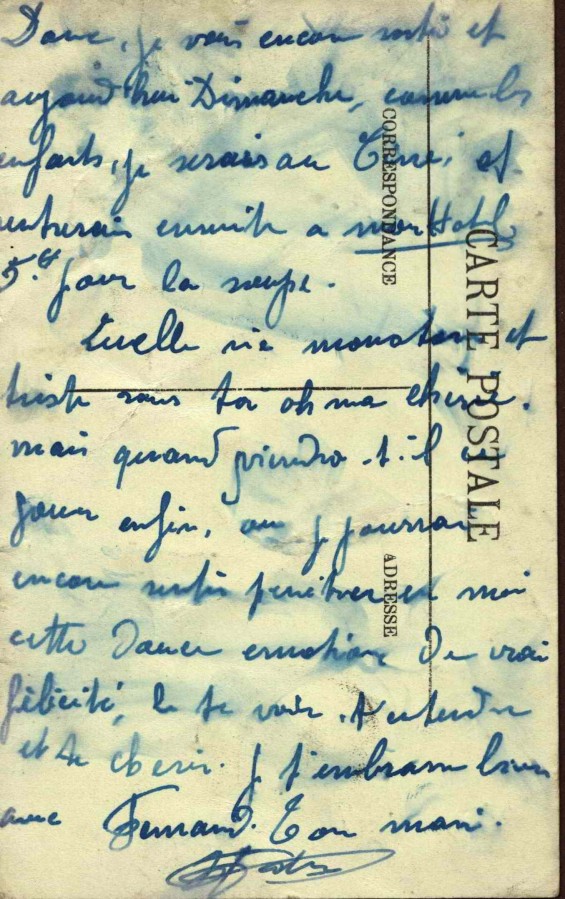 Donc, je vais encore sortir et
aujourd'hui Dimanche, comme les
enfants, je serais au Ciné, et
rentrerais ensuite a mon Hotel,
pour la soupe.
Quelle vie monotone et
triste sans toi oh ma chérie.
mais quand viendra-t-il ce
jour enfin, ou je pourrai
encore sentir pénétrer en moi
cette douce emotion de vrai
félicité, de te voir, t'entendre
et te cherir. Je t'embrasse bien
avec Fernand. Ton mari.
CARTE POSTALE
CORRESPONDANCE
ADRESSE